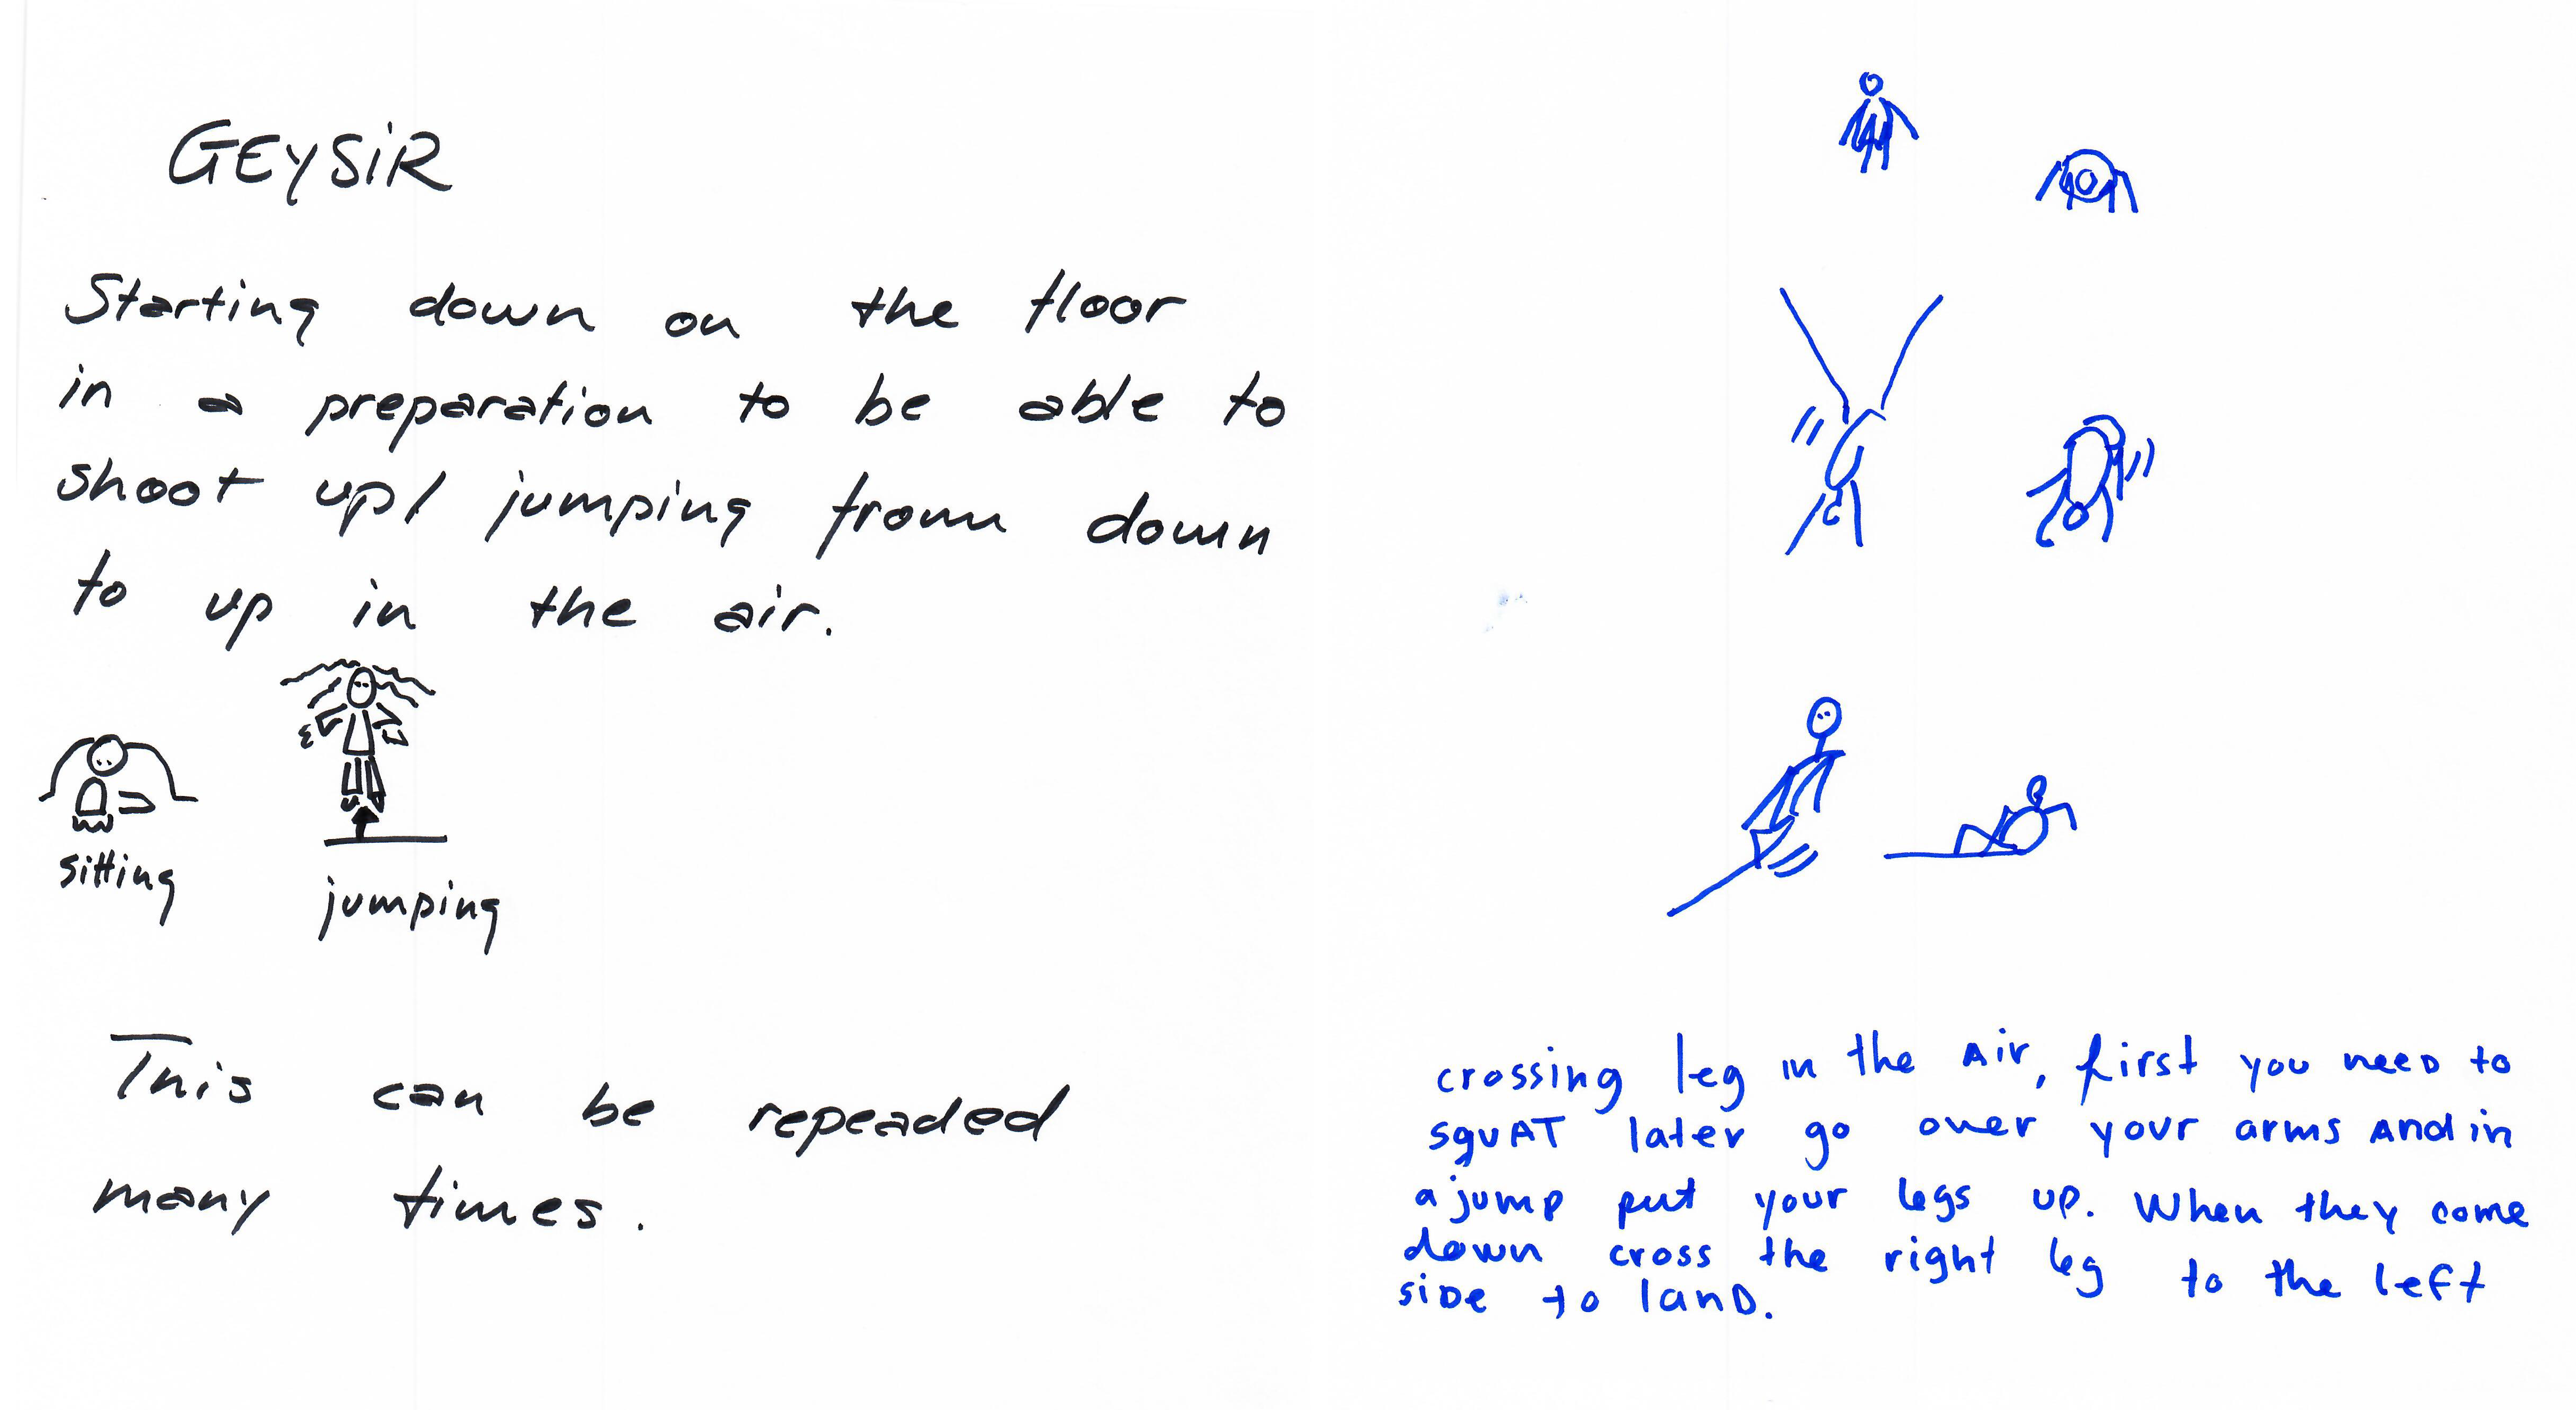 GEYSiR
Starting down on the floor
in a preparation to be able to
shoot up/ jumping from down
to up in the air.
sitting
jumping
This can be repeaded
many times.
crossing leg in the Air, first you need to
squAT later go over your arms And in
a jump put your legs up. When they come
down cross the right leg to the left
side to land.